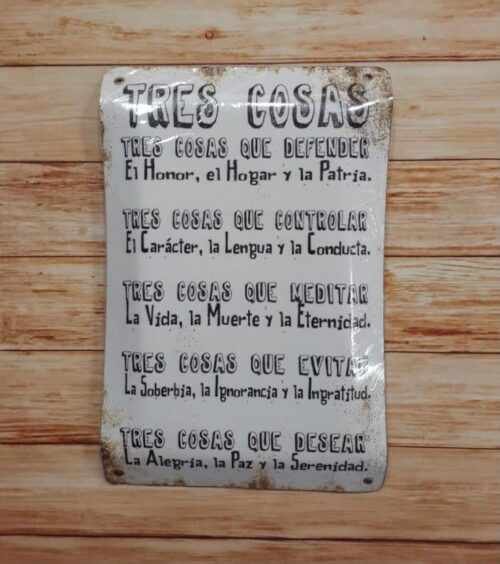 TRES COSAS
TRES COSAS QUE DEFENDER
El Honor, el Hogar y la Patria.
TRES COSAS QUE CONTROLAR
El Carácter, la Lengua y la Conducta.
TRES COSAS QUE MEDITAR
La Vida, la Muerte y la Eternidad.
TRES COSAS QUE EVITAR
La Soberbia, la Ignorancia y la Ingratitud.
TRES COSAS QUE DESEAR
La Alegria, la Paz y la Serenidad.